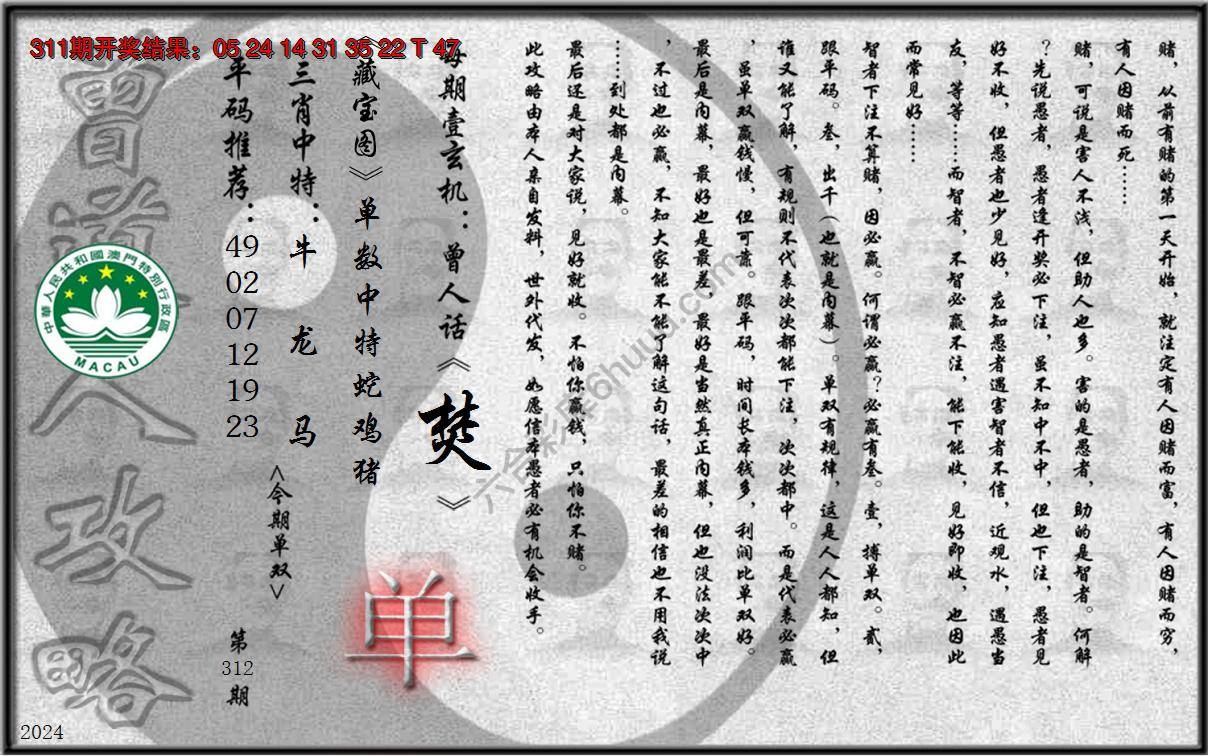 311期开奖结果：05 24 14 31 35 22 T 47
赌，从前有赌的第一天开始，就注定有人因赌而富，有人因赌而穷，
有人因赌而死……
赌，可说是害人不浅，但助人也多。害的是愚者，助的是智者。何解
？先说愚者，愚者逢开奖必下注，虽不知中不中，但也下注，愚者见
好不收，但愚者也少见好，应知愚者遇害智者不信，近观水，遇愚当
友，等等……而智者，不智必赢不注，能下能收，见好即收，也因此
而常见好……
智者下注不算赌，因必赢。何谓必赢？必赢有叁。壹，搏单双。贰，
跟平码。叁，出千（也就是内幕）。单双有规律，这是人人都知，但
谁又能了解，有规则不代表次次都能下注，次次都中。而是代表必赢
，虽单双赢钱慢，但可靠。跟平码，时间长本钱多，利润比单双好。
最后是内幕，最好也是最差，最好是当然真正内幕，但也没法次次中
，不过也必赢，不知大家能不能了解这句话，最差的相信也不用我说
……到处都是内幕。
最后还是对大家说，见好就收。不怕你赢钱，只怕你不赌。
此攻略由本人亲自发料，世外代发，如愿信本愚者必有机会收手。
每期壹玄机：曾人话《焚》
《藏宝图》单数中特蛇鸡猪
单
三肖中特：牛 龙 马
<今期单双>
平码推荐：49 02 07 12 19 23
第312期
曾道人攻略
中華人民共和國澳門特別行政區
MACAU
2024